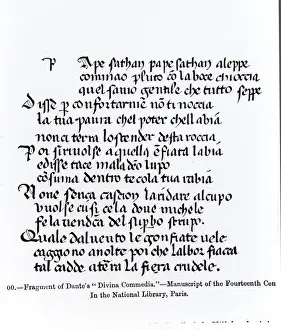 P Ape sathan pape sathan aleppe
cominao pluto cō la boce chioccia
quel savio gentile che tutto seppe
Disse p confortarmē nō ti noccia
la tua paura chel poter chell abia
non ci terra lo scender desta roccia
Poi si rivolse a quella ēfiata labia
e disse tace maladcō lupo
cōsuma dentro te cola tua rabia
None sença cascion laridare al cupo
vuolse cusi cola dove michele
fe la vendcā del supbo strupo
Quale dal vento le gonfiate vele
caggiono avolte poi che lalbor fiacca
tal cadde a terra la fiera crudele.
00.—Fragment of Dante's "Divina Commedia."—Manuscript of the Fourteenth Cen
In the National Library, Paris.